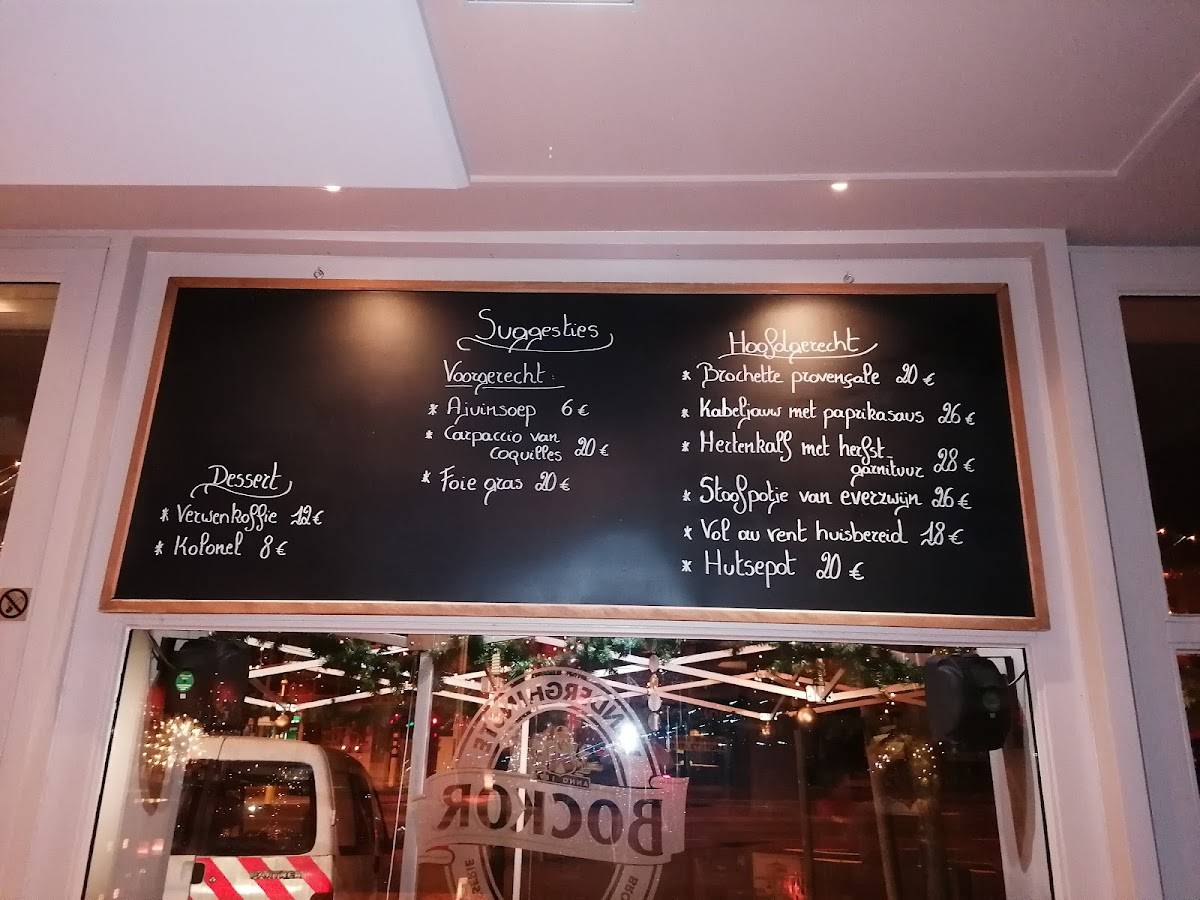 Suggesties
Voorgerecht :
* Ajuinsoep 6 €
* Carpaccio van
coquilles 20 €
* Foie gras 20 €
Hoofdgerecht
* Brochette provençale 20 €
* Kabeljauw met paprikasaus 26 €
* Hertenkalf met herfst-
garnituur 28 €
* Stoofpotje van everzwijn 26 €
* Vol au vent huisbereid 18 €
* Hutsepot 20 €
Dessert
* Verwenkoffie 12 €
* Kolonel 8 €
VANDERGHINSTE
ANNO 18
BOCKOR